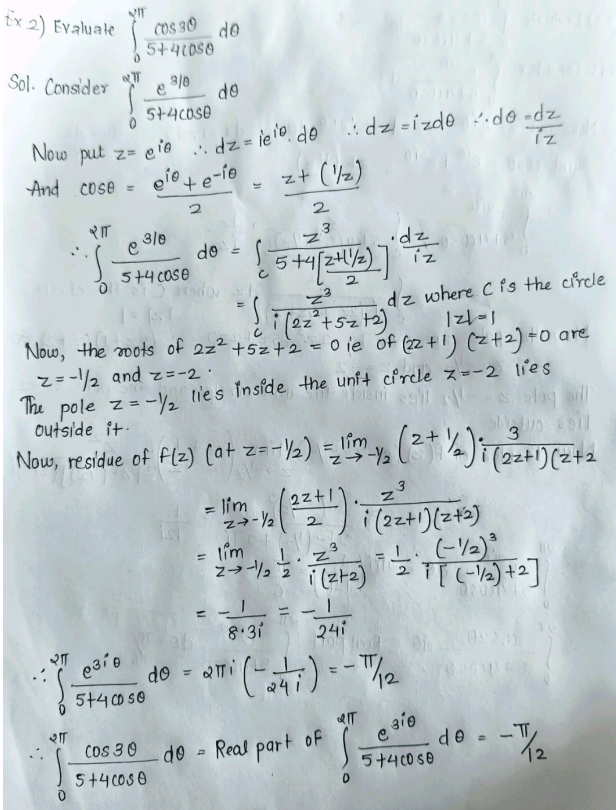 Ex 2) Evaluate ∫₀^2π cos3θ / 5+4cosθ dθ
Sol. Consider ∫₀^2π e^3iθ / 5+4cosθ dθ
Now put z = e^iθ ∴ dz = ie^iθ. dθ ∴ dz = izdθ ∴ dθ = dz/iz
And cosθ = e^iθ + e^-iθ / 2 = z + (1/z) / 2
∴ ∫₀^2π e^3iθ / 5+4cosθ dθ = ∫c z³ / 5+4[z+(1/z) / 2] · dz/iz
= ∫c z³ / i(2z²+5z+2) dz where C is the circle
|z|=1
Now, the roots of 2z²+5z+2 = 0 ie of (2z+1) (z+2) = 0 are
z = -1/2 and z = -2.
The pole z = -1/2 lies inside the unit circle z = -2 lies
outside it.
Now, residue of f(z) (at z = -1/2) = lim z→-1/2 (z + 1/2) · 3 / i(2z+1)(z+2
= lim z→-1/2 (2z+1 / 2) · z³ / i(2z+1)(z+2)
= lim z→-1/2 1/2 · z³ / i(z+2) = 1/2 · (-1/2)³ / i[(-1/2)+2]
= - 1 / 8·3i = - 1 / 24i
∴ ∫₀^2π e^3iθ / 5+4cosθ dθ = 2πi (- 1 / 24i) = - π/12
∴ ∫₀^2π cos3θ / 5+4cosθ dθ = Real part of ∫₀^2π e^3iθ / 5+4cosθ dθ = - π/12